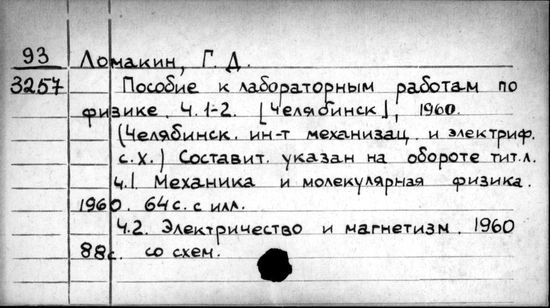 93 Ломакин, Г. Д.
3257 Пособие к лабораторным работам по
физике. Ч. 1-2. [Челябинск], 1960.
(Челябинск. ин-т механизац. и электриф.
с.х.) Составит. указан на обороте тит.л.
ч.1. Механика и молекулярная физика.
1960. 64 с. с илл.
ч.2. Электричество и магнетизм. 1960
88с. со схем.